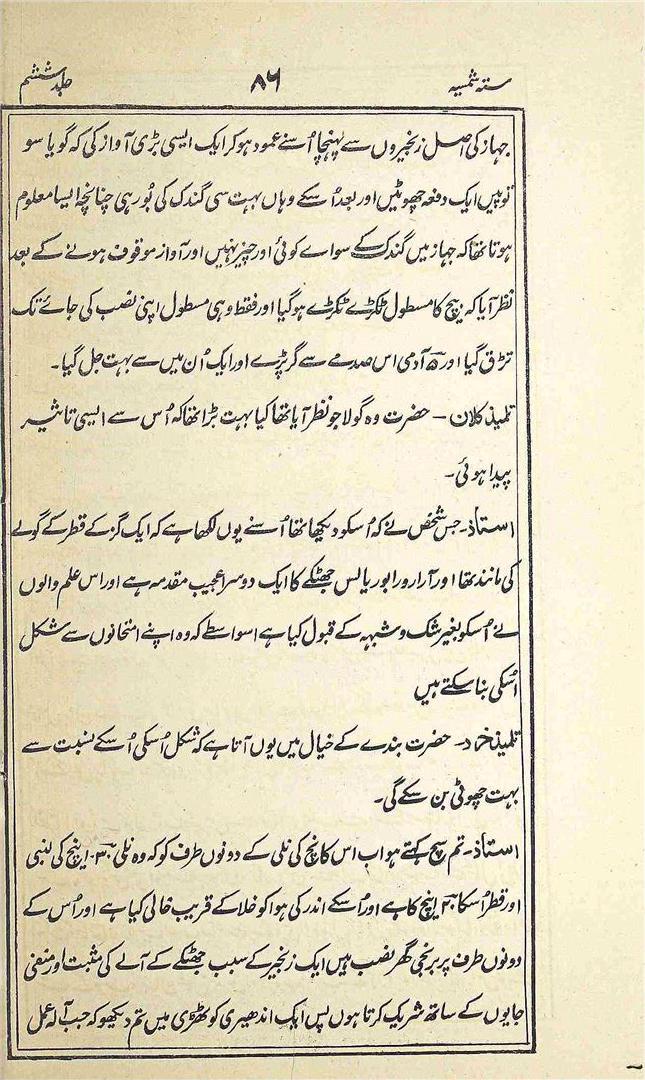 ستہ شمسیہ ۸۶ جلد ششم
جہاز کی اصل زنجیروں سے پہنچا اُسنے عمود ہوکر ایک ایسی بڑی آواز کی کہ گویا سو
توپیں ایک دفعہ چھوٹیں اور بعد اُسکے وہاں بہت سی گندک کی بُو رہی چنانچہ ایسا معلوم
ہوتا تھا کہ جہاز میں گندک کے سواے کوئی اور چیز نہیں اور آواز موقوف ہونے کے بعد
نظر آیا کہ بیچ کا مسطول ٹکڑے ٹکڑے ہوگیا اور فقط وہی مسطول اپنی نصب کی جائے تک
تڑق گیا اور ۵ آدمی اس صدمے سے گر پڑے اور ایک اُن میں سے بہت جل گیا۔
تلمیذ کلان – حضرت وہ گولا جو نظر آیا تھا کیا بہت بڑا تھا کہ اُس سے ایسی تاثیر
پیدا ہوئی۔
استاذ۔ جس شخص نے کہ اُسکو دیکھا تھا اُسنے یوں لکھا ہے کہ ایک گز کے قطر کے گولے
کی مانند تھا اور آرارورابوریالس جھٹکے کا ایک دوسرا عجیب مقدمہ ہے اور اس علم والوں
نے اُسکو بغیر شک و شبہہ کے قبول کیا ہے اسواسطے کہ وہ اپنے امتحانوں سے شکل
اُسکی بنا سکتے ہیں
تلمیذ خرد۔ حضرت بندے کے خیال میں یوں آتا ہے کہ شکل اُسکی اُسکے نسبت سے
بہت چھوٹی بن سکے گی۔
استاذ۔ تم سچ کہتے ہو اب اس کانچ کی نلی کے دونوں طرف کو کہ وہ نلی ۳۰ اینچ کی لنبی
اور قطر اُسکا اینچ کا ہے اور اُسکے اندر کی ہوا کو خلا کے قریب خالی کیا ہے اور اُس کے
دونوں طرف پر برنجی گھر نصب ہیں ایک زنجیر کے سبب جھٹکے کے آلے کی مثبت اور منفی
جایوں کے ساتھ شریک کرتا ہوں پس ایک اندھیری کوٹھڑی میں تم دیکھو کہ جب آلہ عمل